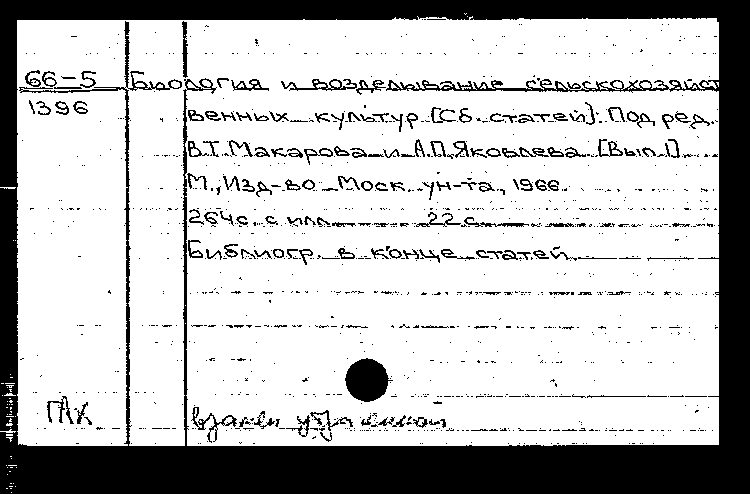 66-5 Биология и возделывание сельскохозяйст
1396 венных культур [Сб. статей]. Под ред.
В.Т. Макарова и А.П. Яковлева [Вып. 1].
М., Изд-во Моск. ун-та, 1966.
264с. с илл. 22 с.
Библиогр. в конце статей.
ГАХ взамен утраченной